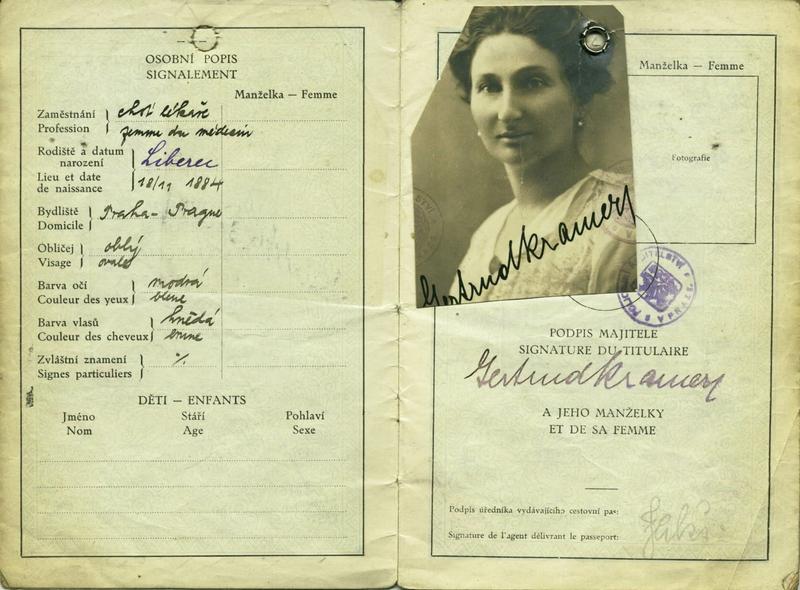 OSOBNÍ POPIS
SIGNALEMENT
Manželka — Femme
Zaměstnání
Profession
choť lékaře
femme du médecin
Rodiště a datum
narození
Lieu et date
de naissance
Liberec
18/11 1884
Bydliště
Domicile
Praha - Prague
Obličej
Visage
oblý
ovale
Barva očí
Couleur des yeux
modrá
bleue
Barva vlasů
Couleur des cheveux
hnědá
Zvláštní znamení
Signes particuliers
%
DĚTI — ENFANTS
Jméno Stáří Pohlaví
Nom Age Sexe
Manželka — Femme
Fotografie
Gertrud Kramer
PODPIS MAJITELE
SIGNATURE DU TITULAIRE
Gertrud Kramer
A JEHO MANŽELKY
ET DE SA FEMME
Podpis úředníka vydávajícího cestovní pas:
Signature de l'agent délivrant le passeport: